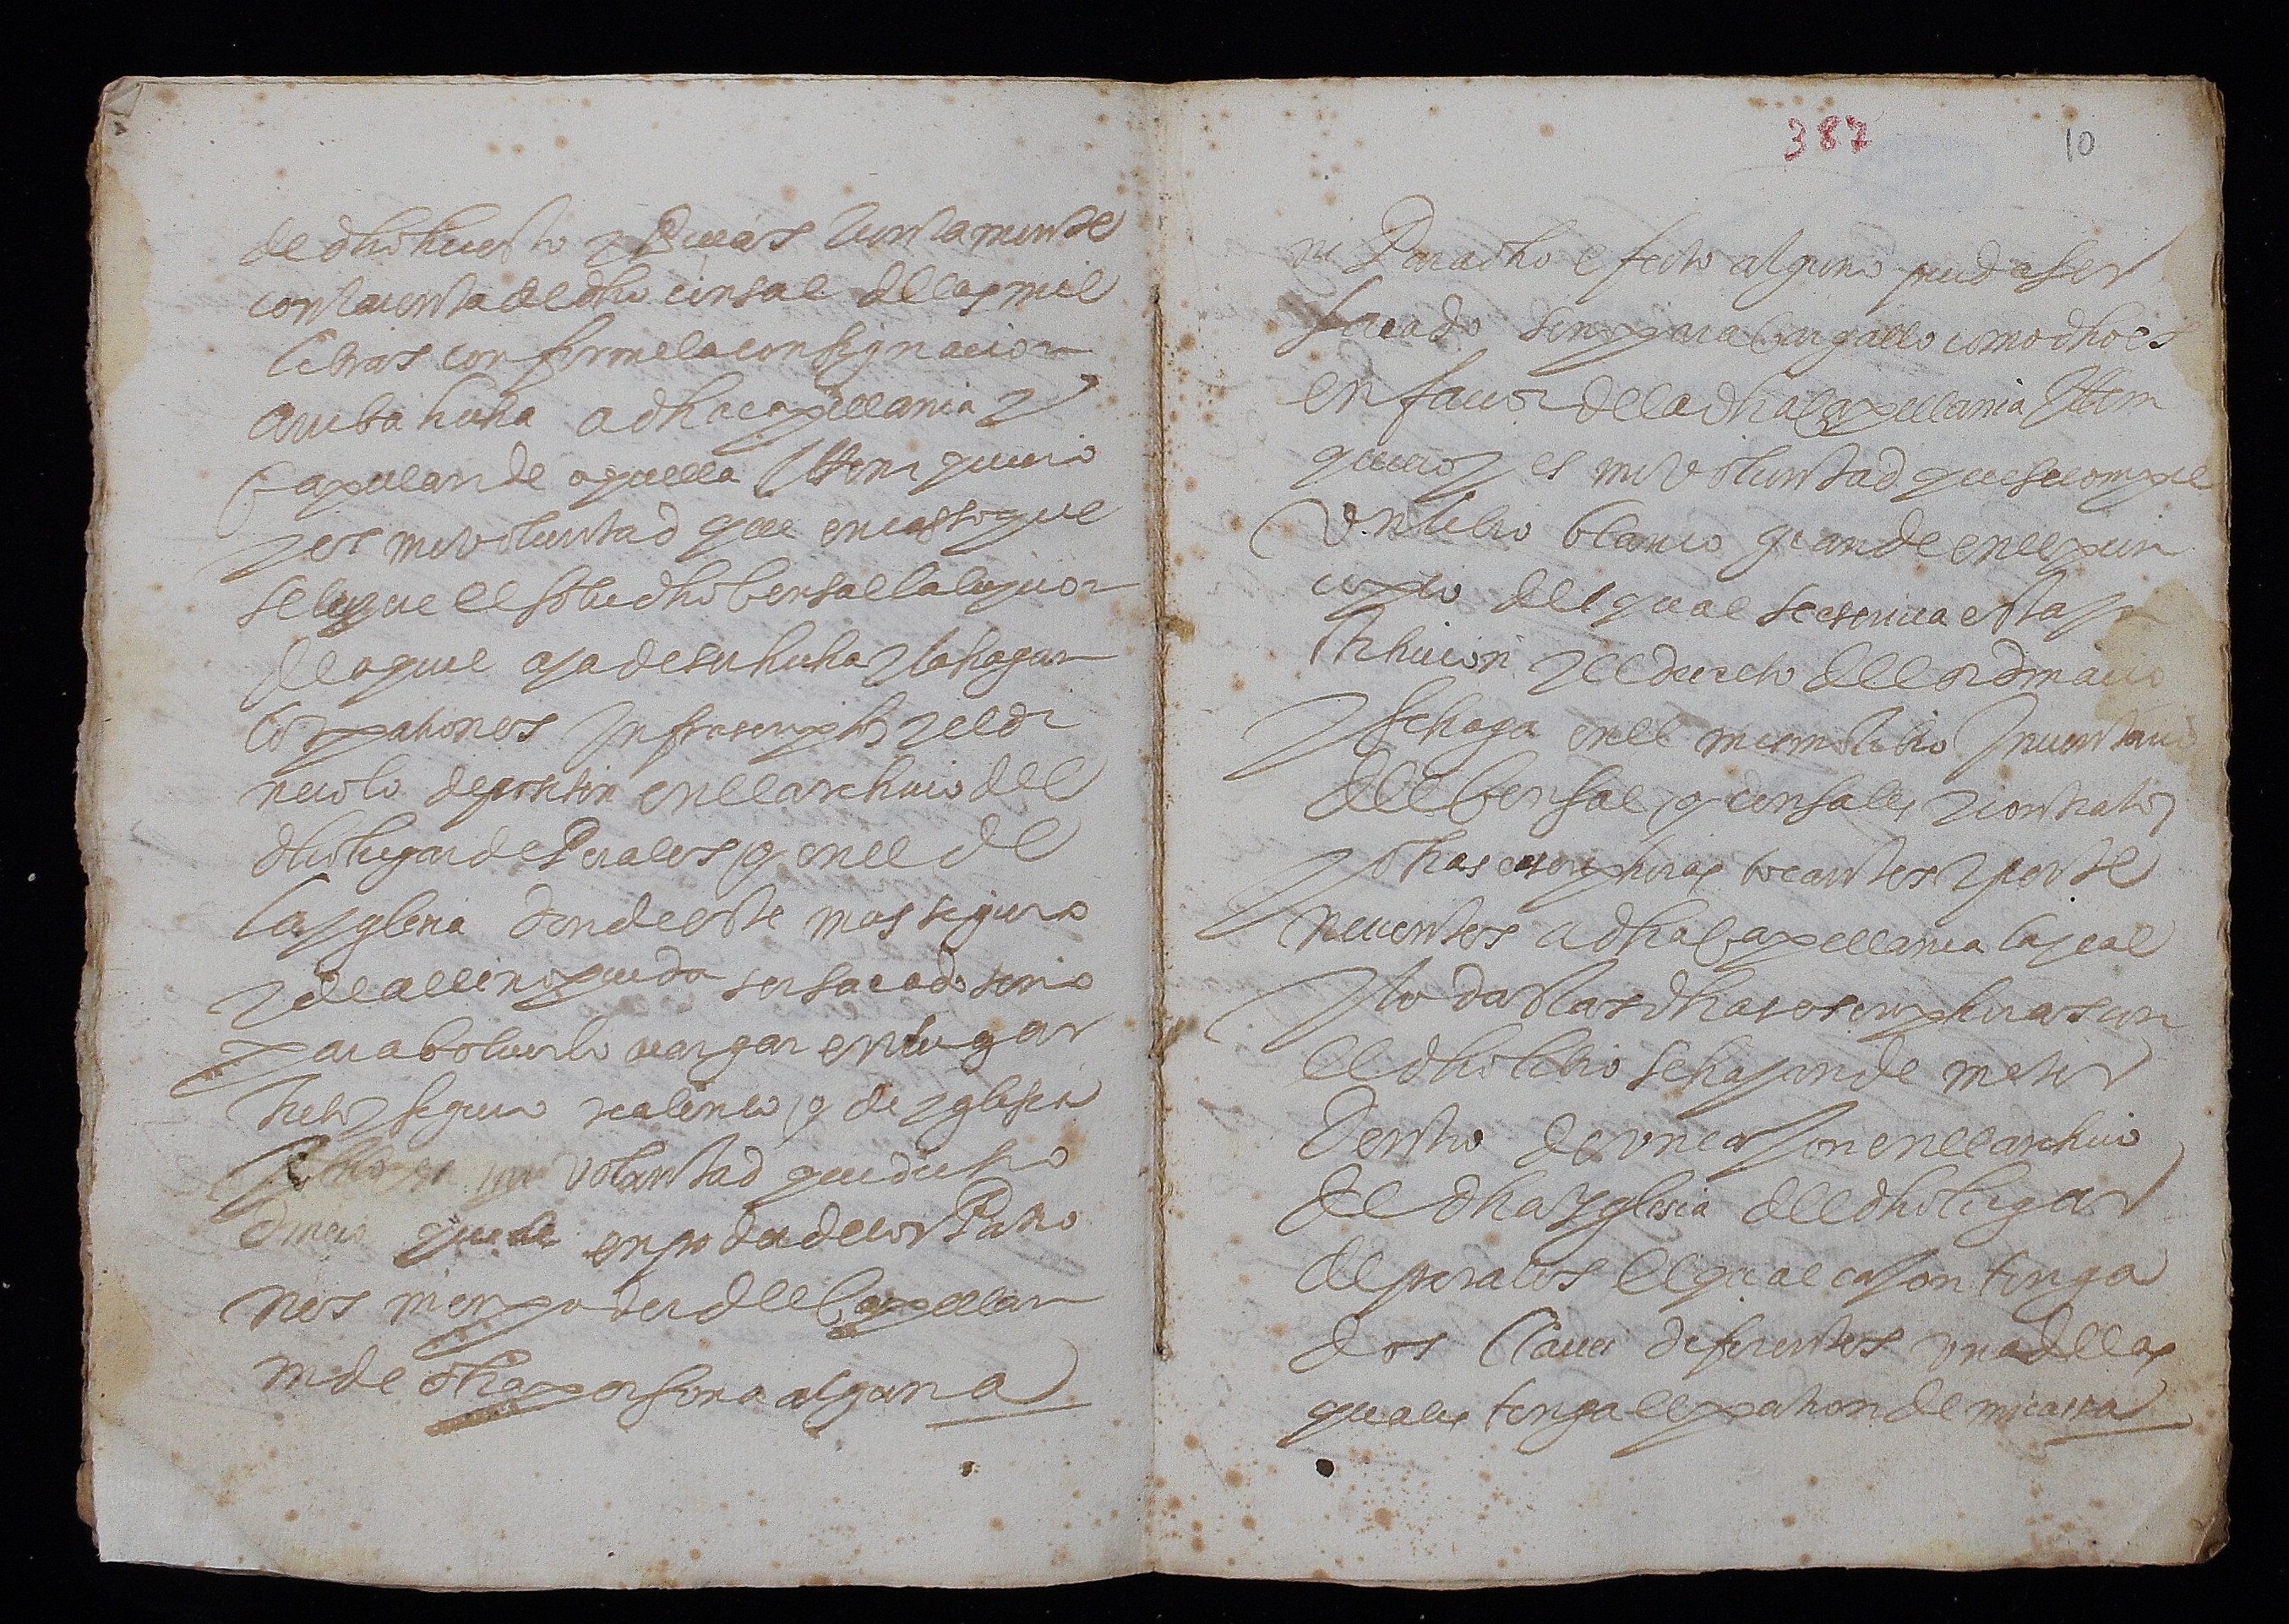 de dho huerto y Pieças Juntamente
con la renta de dho censal de las mil
libras conforme la consignacion
arriba hecha a dha capellania y
Capellan de aquella Ittem quiero
y es mi voluntad que en casso que
se luyere el sobredho Censal la luycion
de aquel aya de ser hecha y la hagan
los patrones infrascriptos y el di
nero lo depositen en el archivio del
dho lugar de Perales o en el de
la yglesia donde este mas seguro
y de alli no pueda ser sacado sino
para bolverlo a cargar en lugar
tuto y seguro realenco o de yglesia
voluntad que dicho
dinero quede en poder de los Patro
nes ni en poder del Capellan
ni de otra persona alguna
387 10
ni Para otro efecto alguno pueda ser
sacado sino para cargallo como dho es
en favor de la dha Capellania Ittem
quiero y es mi voluntad que se compre
Un libro blanco grande en el prin
cipio del qual se escriva esta
tituicion y el decreto del ordinario
y se haga en el mesmo libro Inventario
del Censal o censales y contratos
y otras escripturas tocantes y perte
necientes a dha Capellania la qual
y todas las dhas escripturas con
el dho libro se hayan de meter
Dentro de un caxon en el archivio
de dha Yglesia del dho lugar
de perales el qual caxon tenga
dos llaves diferentes una de las
quales tenga el patron de mi cassa